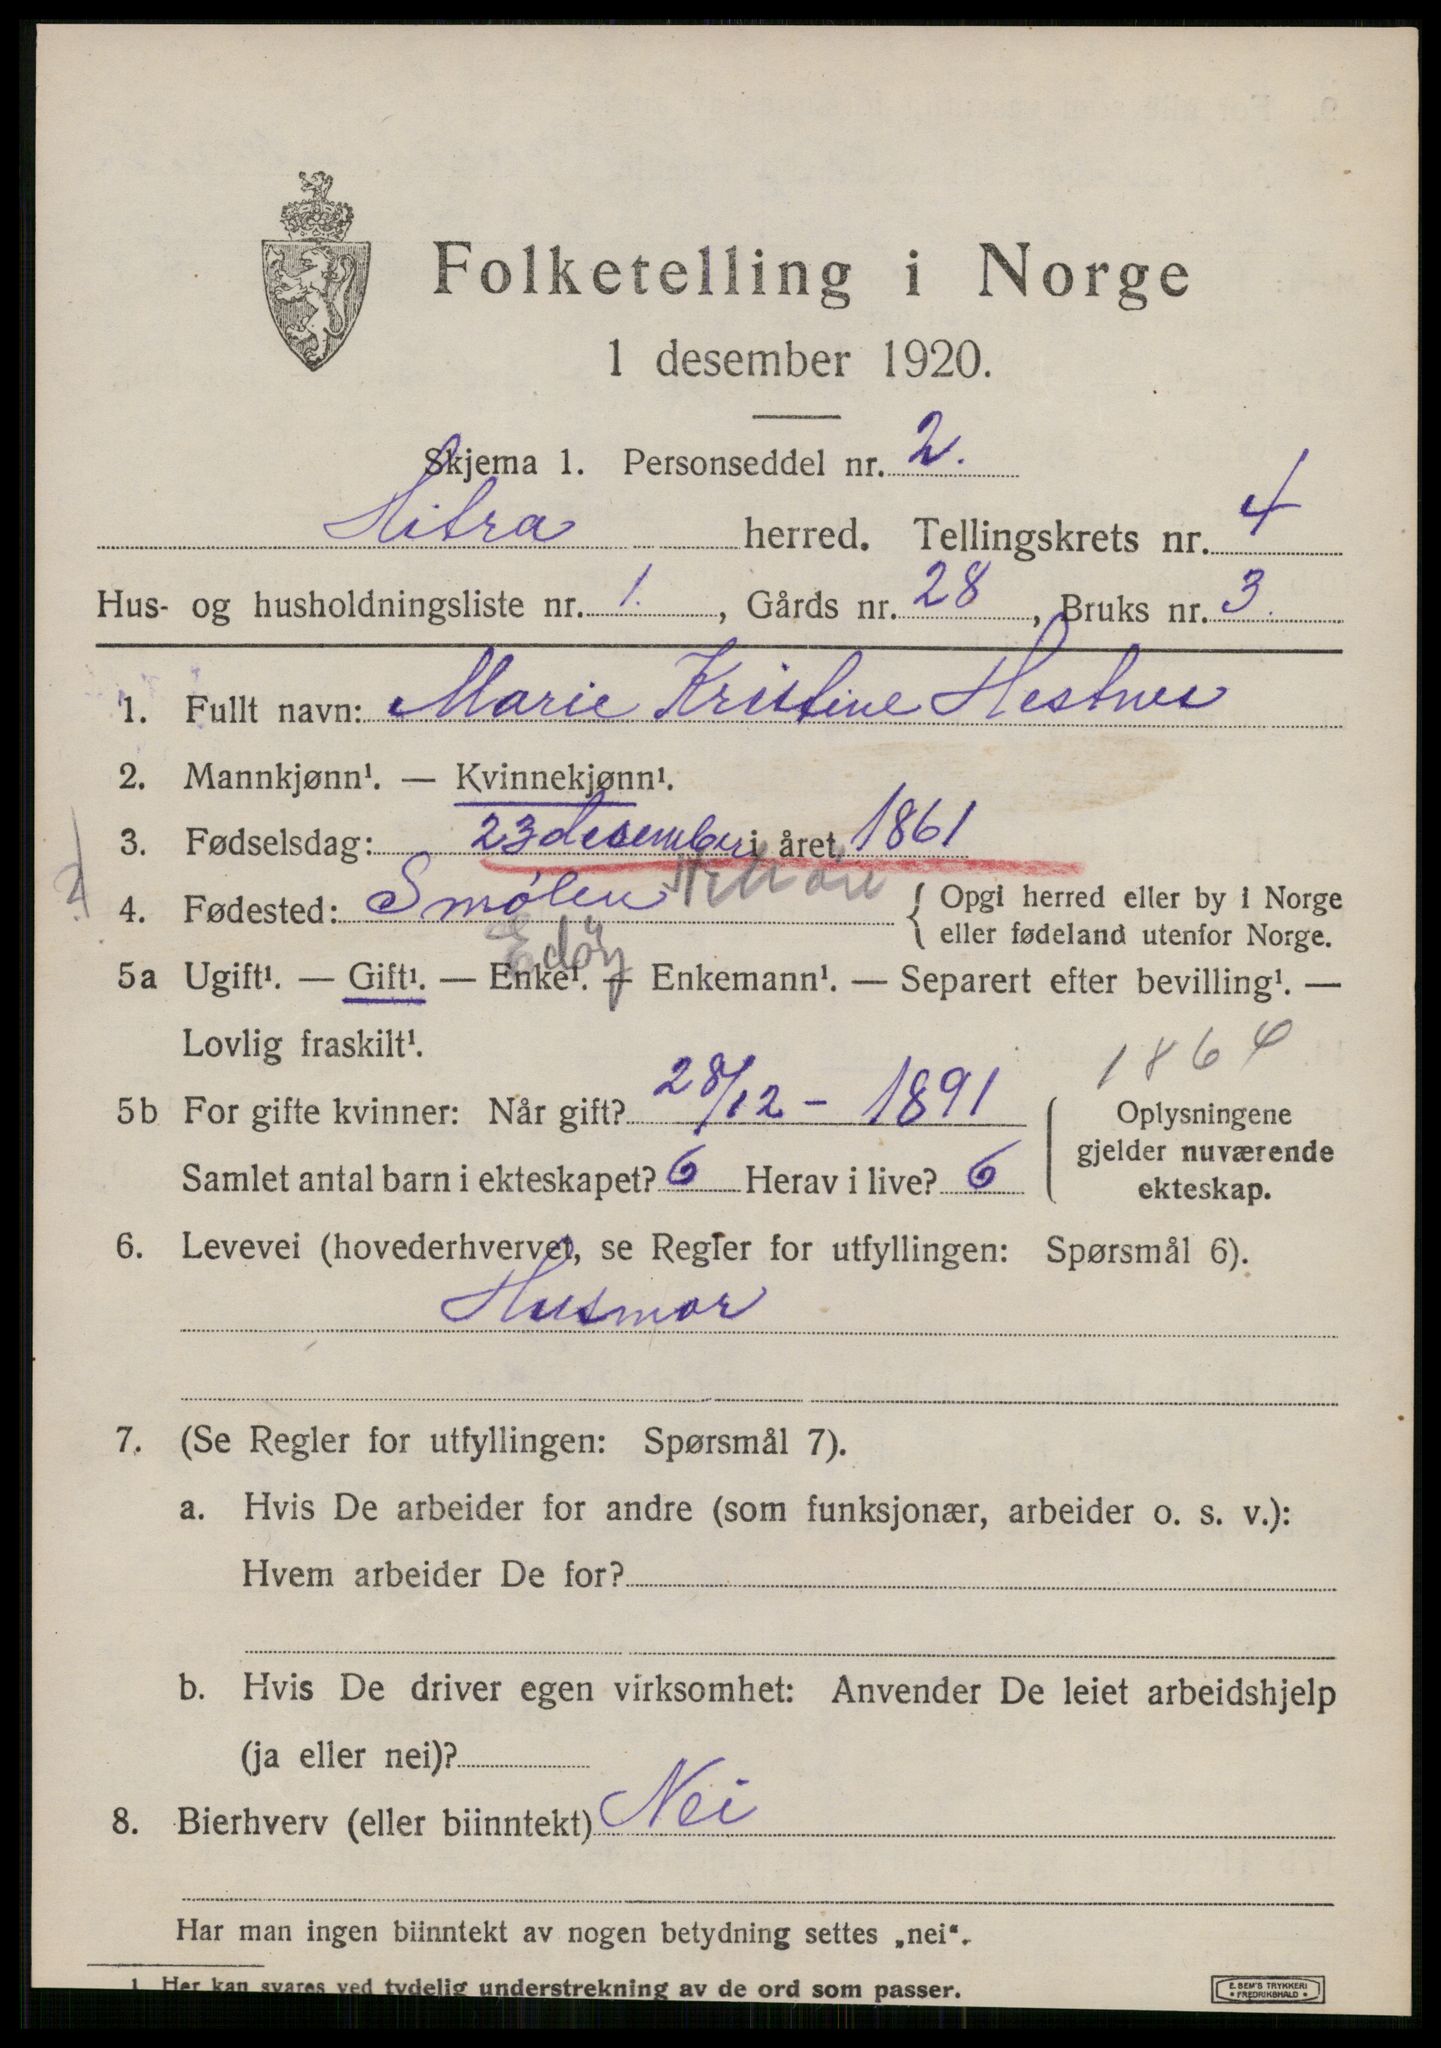 Folketelling i Norge
1 desember 1920.
Skjema 1. Personseddel nr. 2.
Hitra herred. Tellingskrets nr. 4
Hus- og husholdningsliste nr. 1. , Gårds nr. 28 , Bruks nr. 3.
1. Fullt navn: Marie Kristine Hestnes
2. Mannkjønn¹. — Kvinnekjønn¹.
3. Fødselsdag: 23 desember i året 1861
4. Fødested: Smølen { Opgi herred eller by i Norge
eller fødeland utenfor Norge.
Edøy
5a Ugift¹. — Gift¹. — Enke¹. — Enkemann¹. — Separert efter bevilling¹. —
Lovlig fraskilt¹.
186
5b For gifte kvinner: Når gift? 28/12 - 1891
Samlet antal barn i ekteskapet? 6 Herav i live? 6
Oplysningene
gjelder nuværende
ekteskap.
6. Levevei (hovederhvervet, se Regler for utfyllingen: Spørsmål 6).
Husmor
7. (Se Regler for utfyllingen: Spørsmål 7).
a. Hvis De arbeider for andre (som funksjonær, arbeider o. s. v.):
Hvem arbeider De for?
b. Hvis De driver egen virksomhet: Anvender De leiet arbeidshjelp
(ja eller nei)?
8. Bierhverv (eller biinntekt) Nei
Har man ingen biinntekt av nogen betydning settes „nei“.
1 Her kan svares ved tydelig understrekning av de ord som passer.
E. SEM'S TRYKKERI
• FREDRIKSHALD •